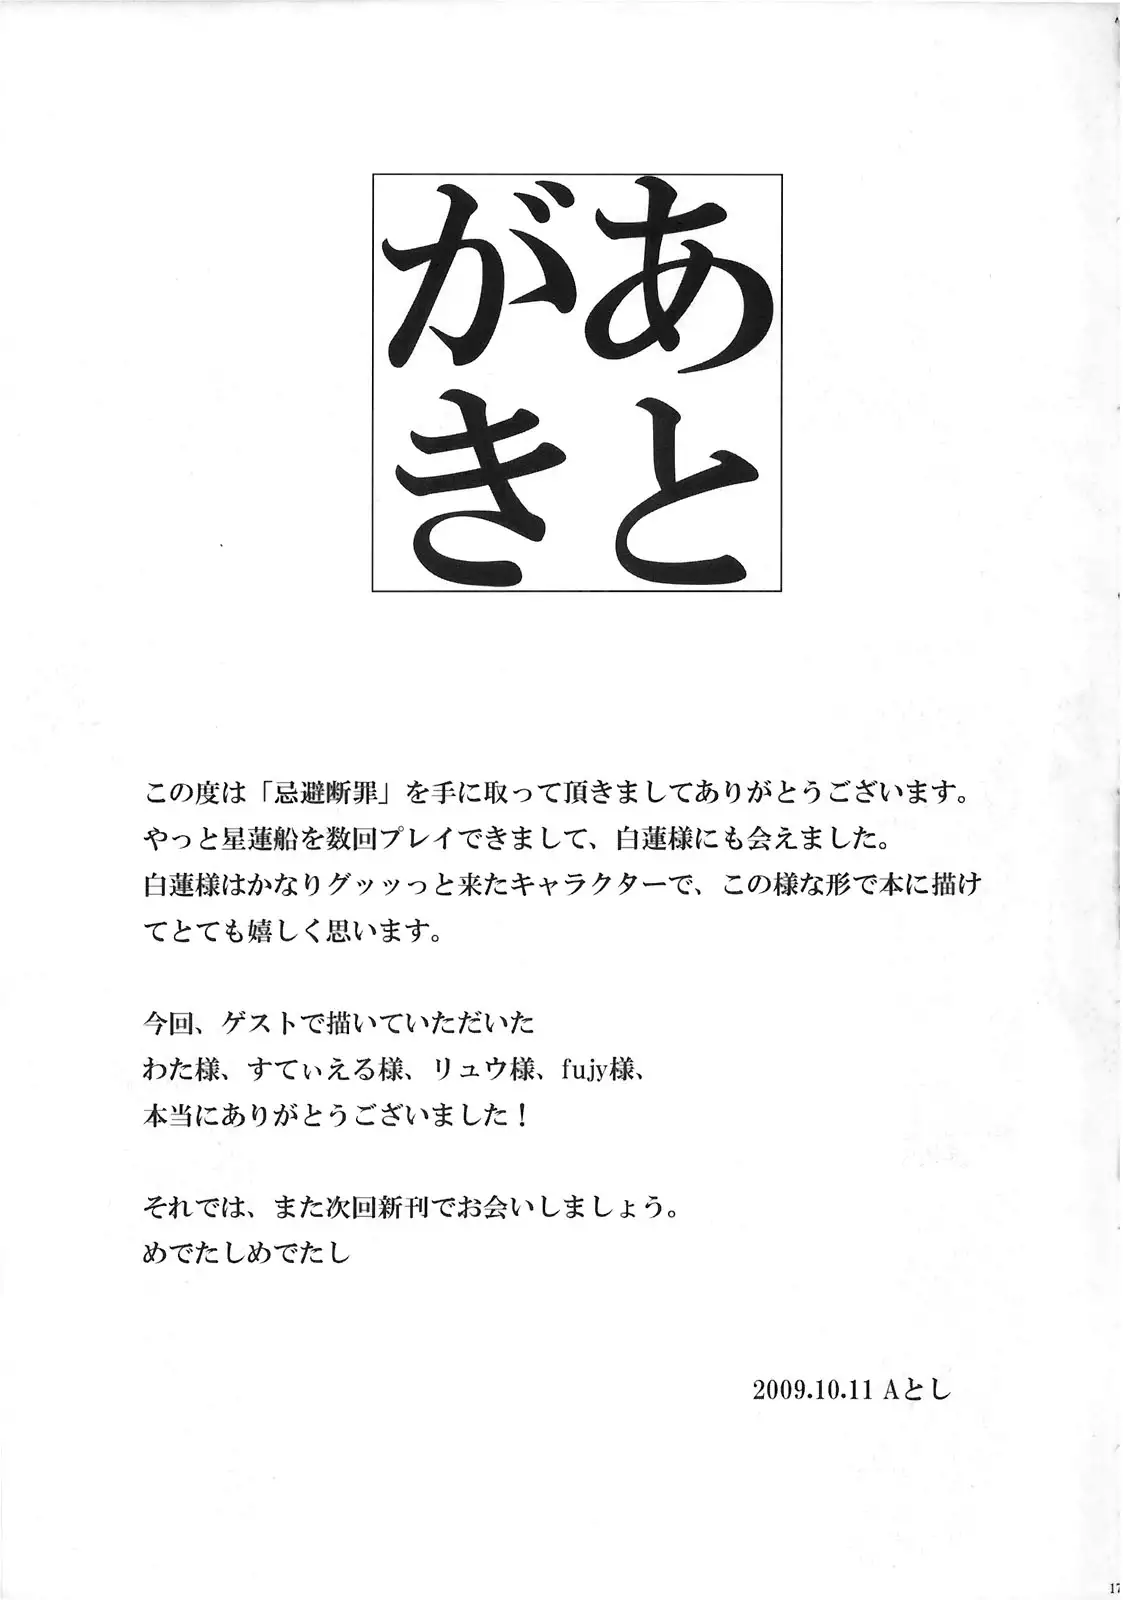 あと
がき
この度は「忌避断罪」を手に取って頂きましてありがとうございます。
やっと星蓮船を数回プレイできまして、白蓮様にも会えました。
白蓮様はかなりグッッっと来たキャラクターで、この様な形で本に描け
てとても嬉しく思います。
今回、ゲストで描いていただいた
わた様、すてぃえる様、リュウ様、fujy様、
本当にありがとうございました！
それでは、また次回新刊でお会いしましょう。
めでたしめでたし
2009.10.11 Aとし
17